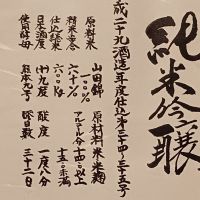 純米吟醸
成二十九酒造年度仕込第三十四〜三十五号
原料米 山田錦
精米歩合 六十%
仕込総米 六〇〇kg
日本酒度 (+)九度
使用酵母 熊本九号
原材料 米 米麹
アルコール分 十四以上
十五.〇未満
酸度 一度八分
醪日数 三十二日